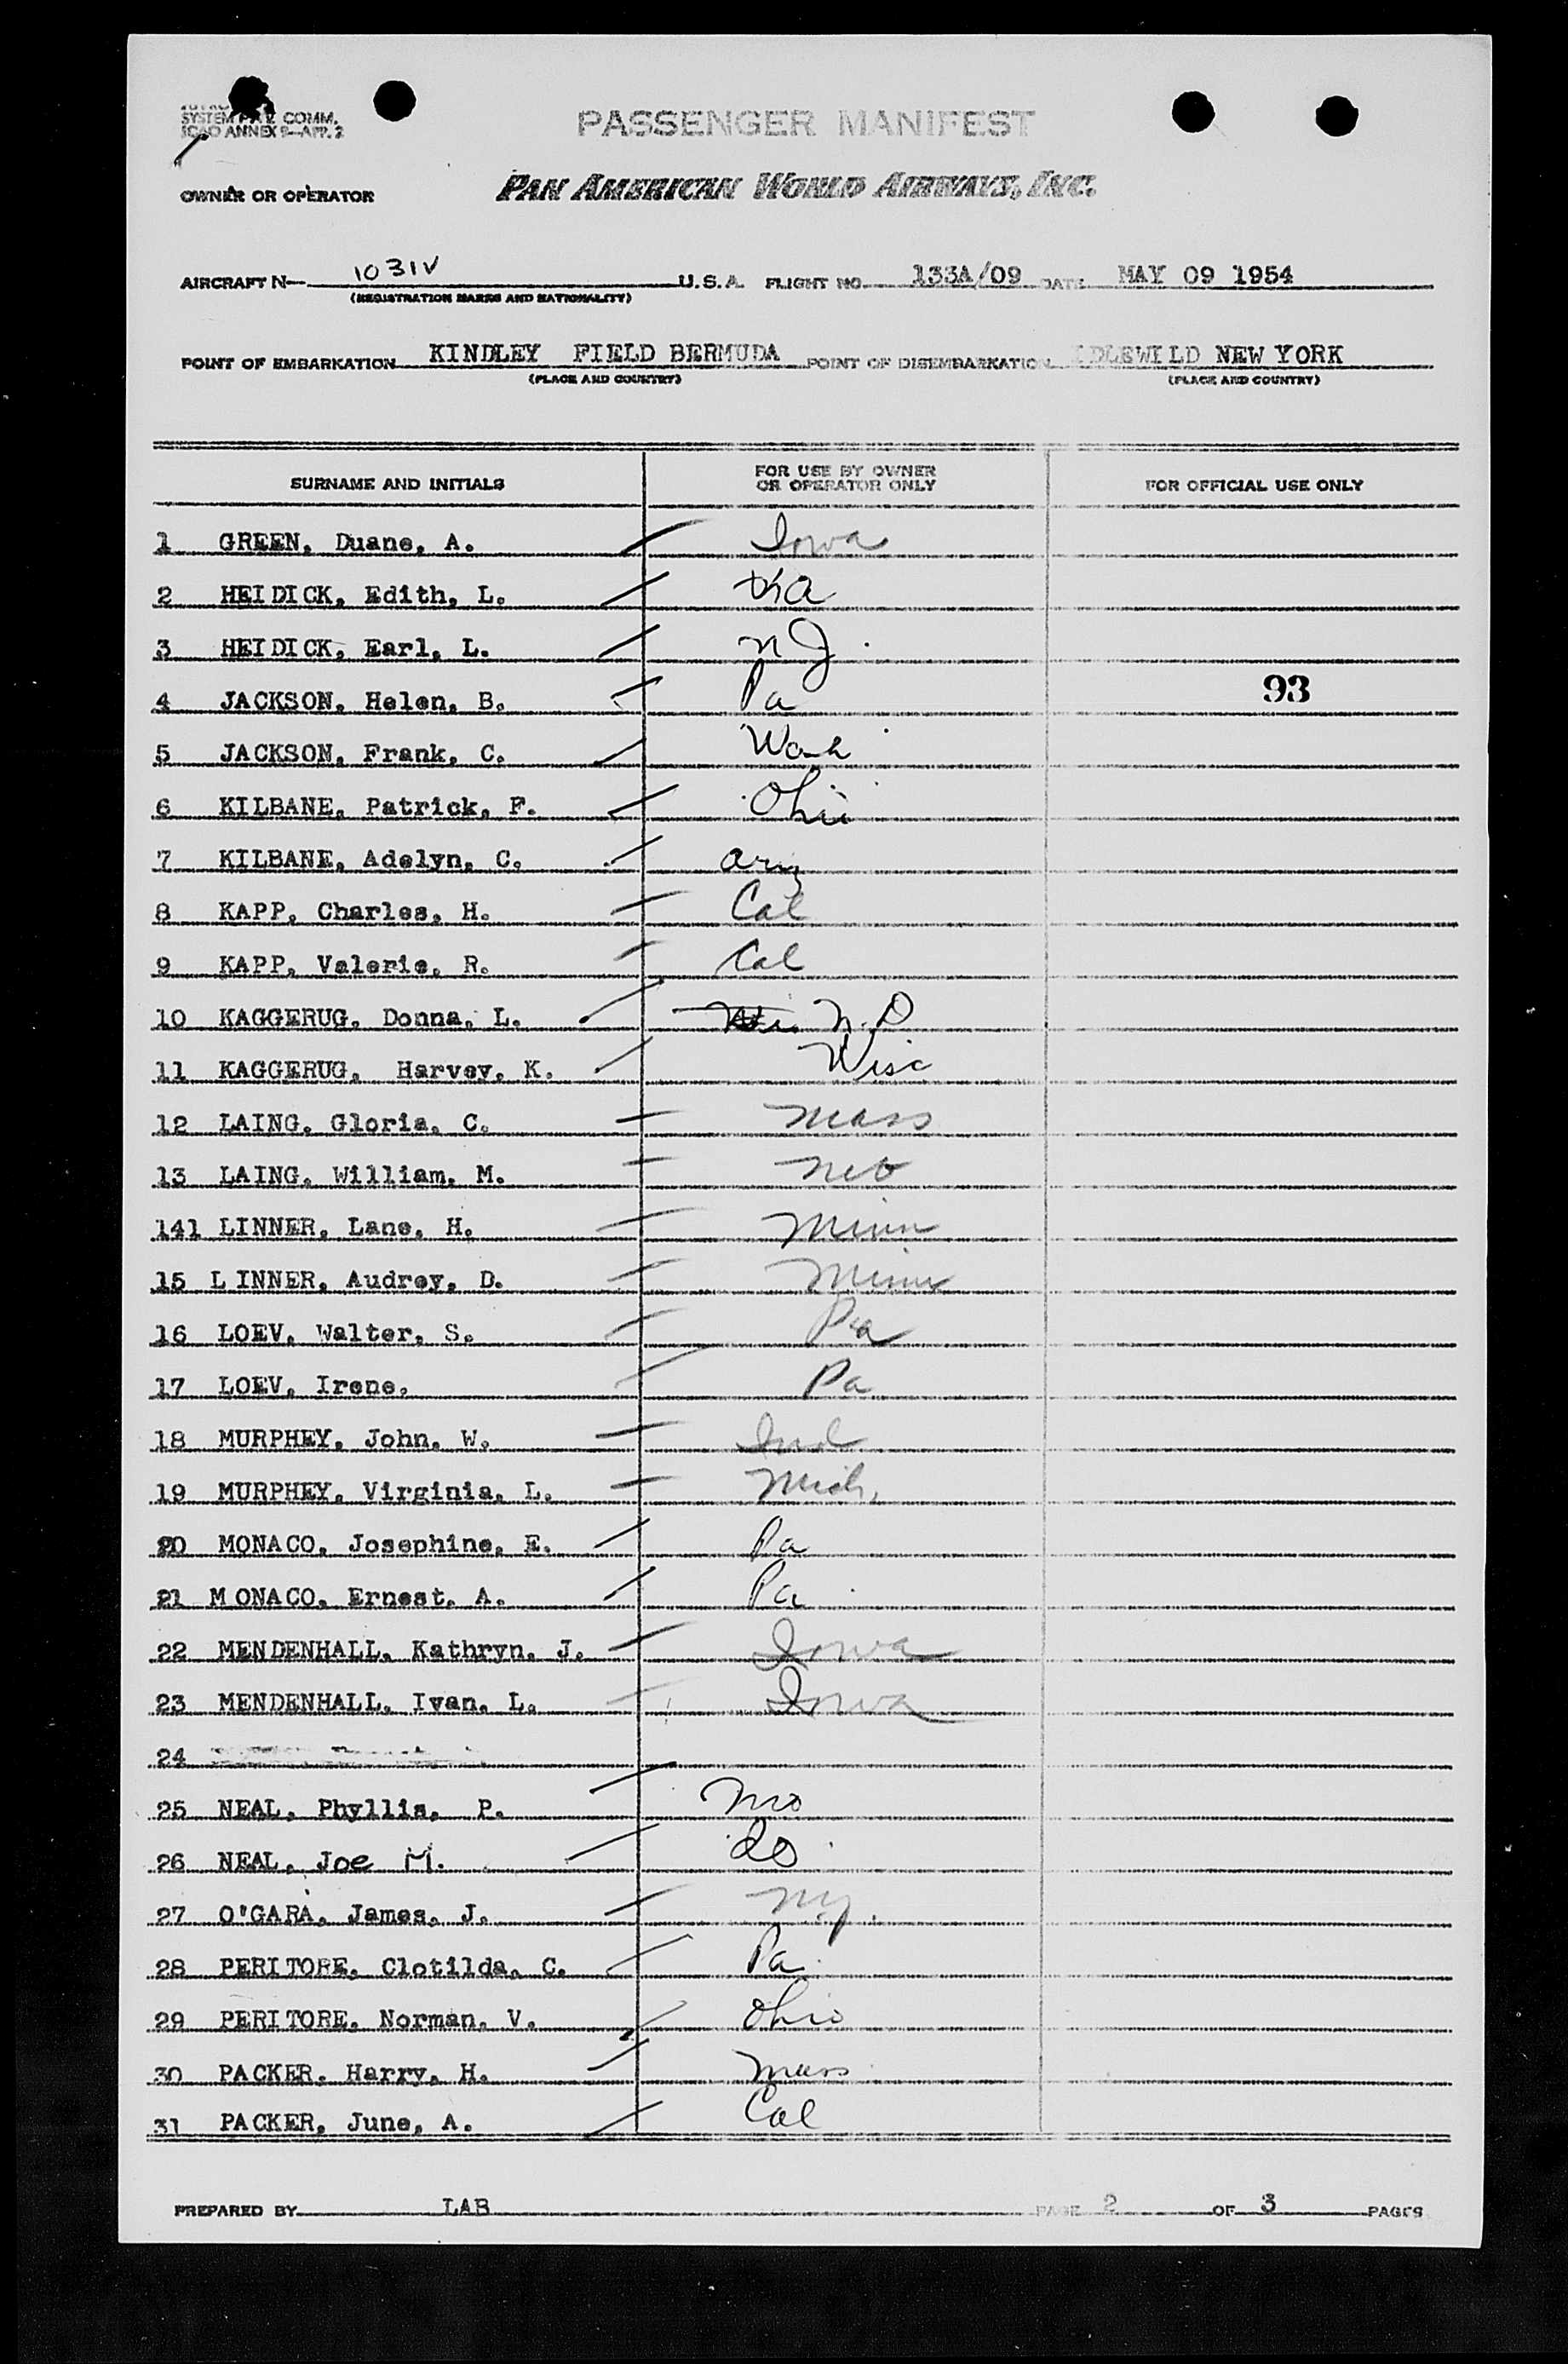 SYSTEM COMM.
ICAO ANNEX 9—APP. 2
PASSENGER MANIFEST
OWNER OR OPERATOR PAN AMERICAN WORLD AIRWAYS, INC.
AIRCRAFT N— 1031V U.S.A. FLIGHT NO. 133A/09 DATE MAY 09 1954
(REGISTRATION MARKS AND NATIONALITY)
POINT OF EMBARKATION KINDLEY FIELD BERMUDA POINT OF DISEMBARKATION IDLEWILD NEW YORK
(PLACE AND COUNTRY) (PLACE AND COUNTRY)
SURNAME AND INITIALS FOR USE BY OWNER OR OPERATOR ONLY FOR OFFICIAL USE ONLY
1 GREEN, Duane, A. Iowa
2 HEIDICK, Edith, L.
3 HEIDICK, Earl, L. NJ
4 JACKSON, Helen, B. Pa 93
5 JACKSON, Frank, C. Wash
6 KILBANE, Patrick, F. Ohio
7 KILBANE, Adelyn, C. Ariz
8 KAPP, Charles, H. Cal
9 KAPP, Valerie, R. Cal
10 KAGGERUG, Donna, L. N.D
11 KAGGERUG, Harvey, K. Wisc
12 LAING, Gloria, C. Mass
13 LAING, William, M. Neb
141 LINNER, Lane, H. Minn
15 L INNER, Audrey, D. Minn
16 LOEV, Walter, S. Pa
17 LOEV, Irene, Pa
18 MURPHEY, John, W. Ind
19 MURPHEY, Virginia, L. Mich,
20 MONACO, Josephine, E. Pa
21 M ONACO, Ernest, A. Pa
22 MENDENHALL, Kathryn, J. Iowa
23 MENDENHALL, Ivan, L. Iowa
24
25 NEAL, Phyllis, P. Mo
26 NEAL, Joe M. do
27 O'GARA, James, J. Ny.
28 PERITORE, Clotilda, C. Pa
29 PERITORE, Norman, V. Ohio
30 PACKER, Harry, H. Mass
31 PACKER, June, A. Cal
PREPARED BY LAB PAGE 2 OF 3 PAGES